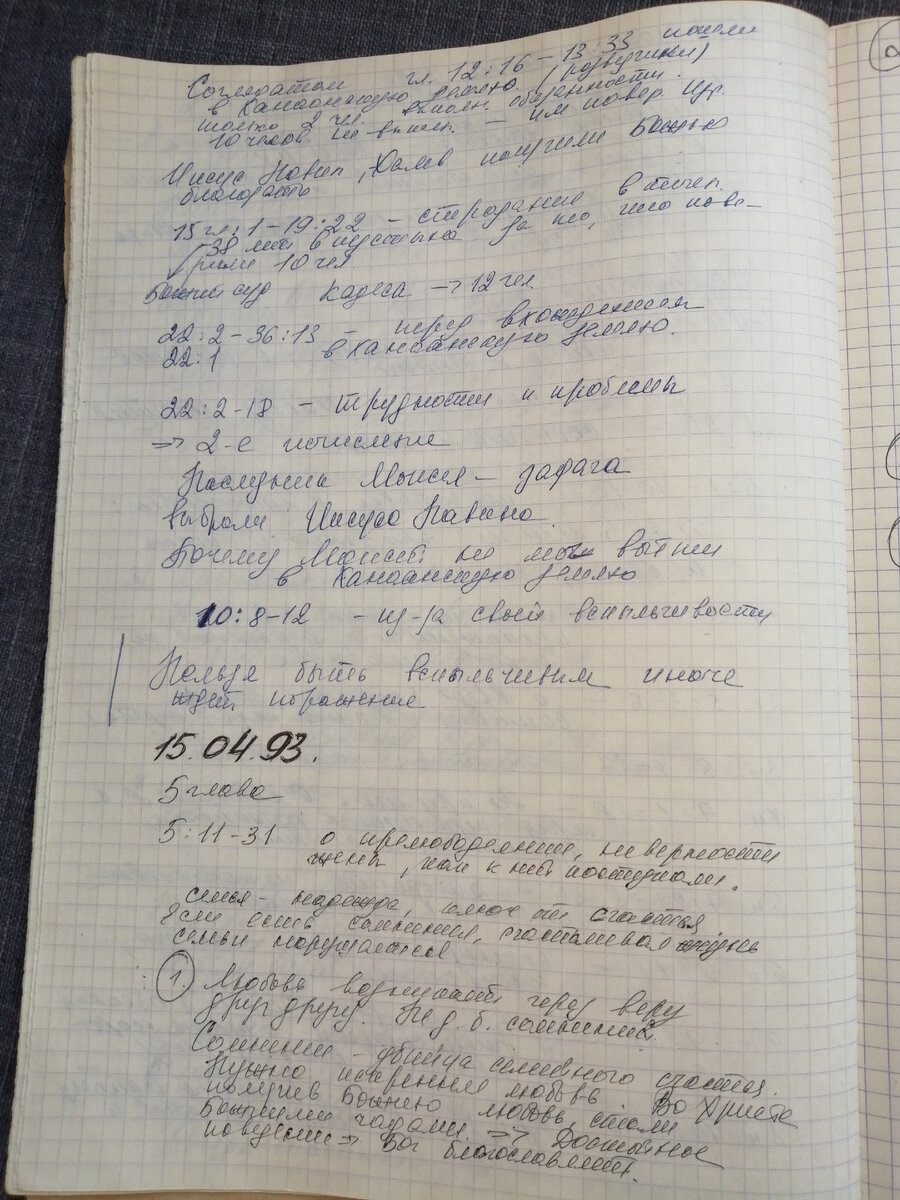 Соглядатаи гл. 12:16 – 13:33 пошли
в Канаанскую землю (разведчики)
только 2 чел. выполн. обязанности.
10 человек не выполн. – им повер. изр.
Иисус Навин, Халев получили Божью
благодать
15 гл: 1 – 19:22 – страдание в течен.
38 лет в пустыне за то, что пове-
рили 10 чел
Божий суд Кадеса → 12 чел
22:2 – 36:13 – перед вхождением
22:1 в Канаанскую землю.
22:2-18 – трудности и проблемы
⇒ 2-е исчисление
Последняя Моисея – задача
выбрали Иисуса Навина
Почему Моисей не мог войти
в Канаанскую землю
20:8-12 – из-за своей вспыльчивости
Нельзя быть вспыльчивым иначе
ждет поражение
15.04.93.
5 глава
5:11-31 о прелюбодеянии, неверности
жены, как к ней поступали.
семья – надежда, ключ от счастья
Если есть сомнения, счастливая жизнь
семьи нарушается
1. Любовь возникает через веру
друг другу. Не д. б. сомнений.
Сомнение – убийца семейного счастья.
Нужно искренняя любовь во Христе
получив Божью любовь, стали
Божьими чадами. ⇒ Достойное
поведение ⇒ Бог благословляет.